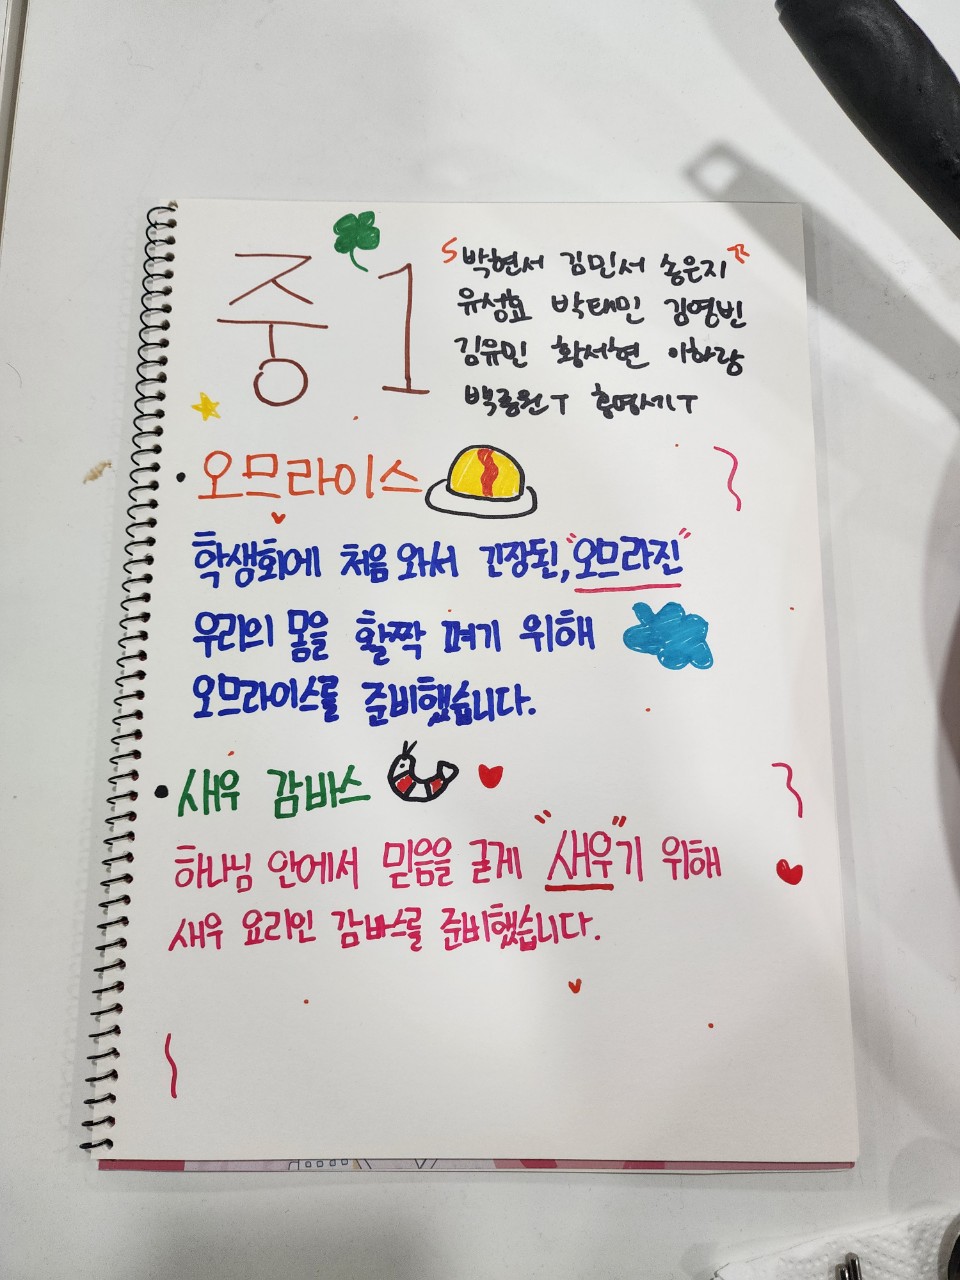 중1
박현서 김민서 송은지
유성효 박태민 김영빈
김유민 황서현 이하랑
박종원T 홍영세기T
· 오므라이스
학생회에 처음 와서 긴장된, "오므라진"
우리의 몸을 활짝 펴기 위해
오므라이스를 준비했습니다.
· 새우 감바스
하나님 안에서 믿음을 굳게 "새우"기 위해
새우 요리인 감바스를 준비했습니다.